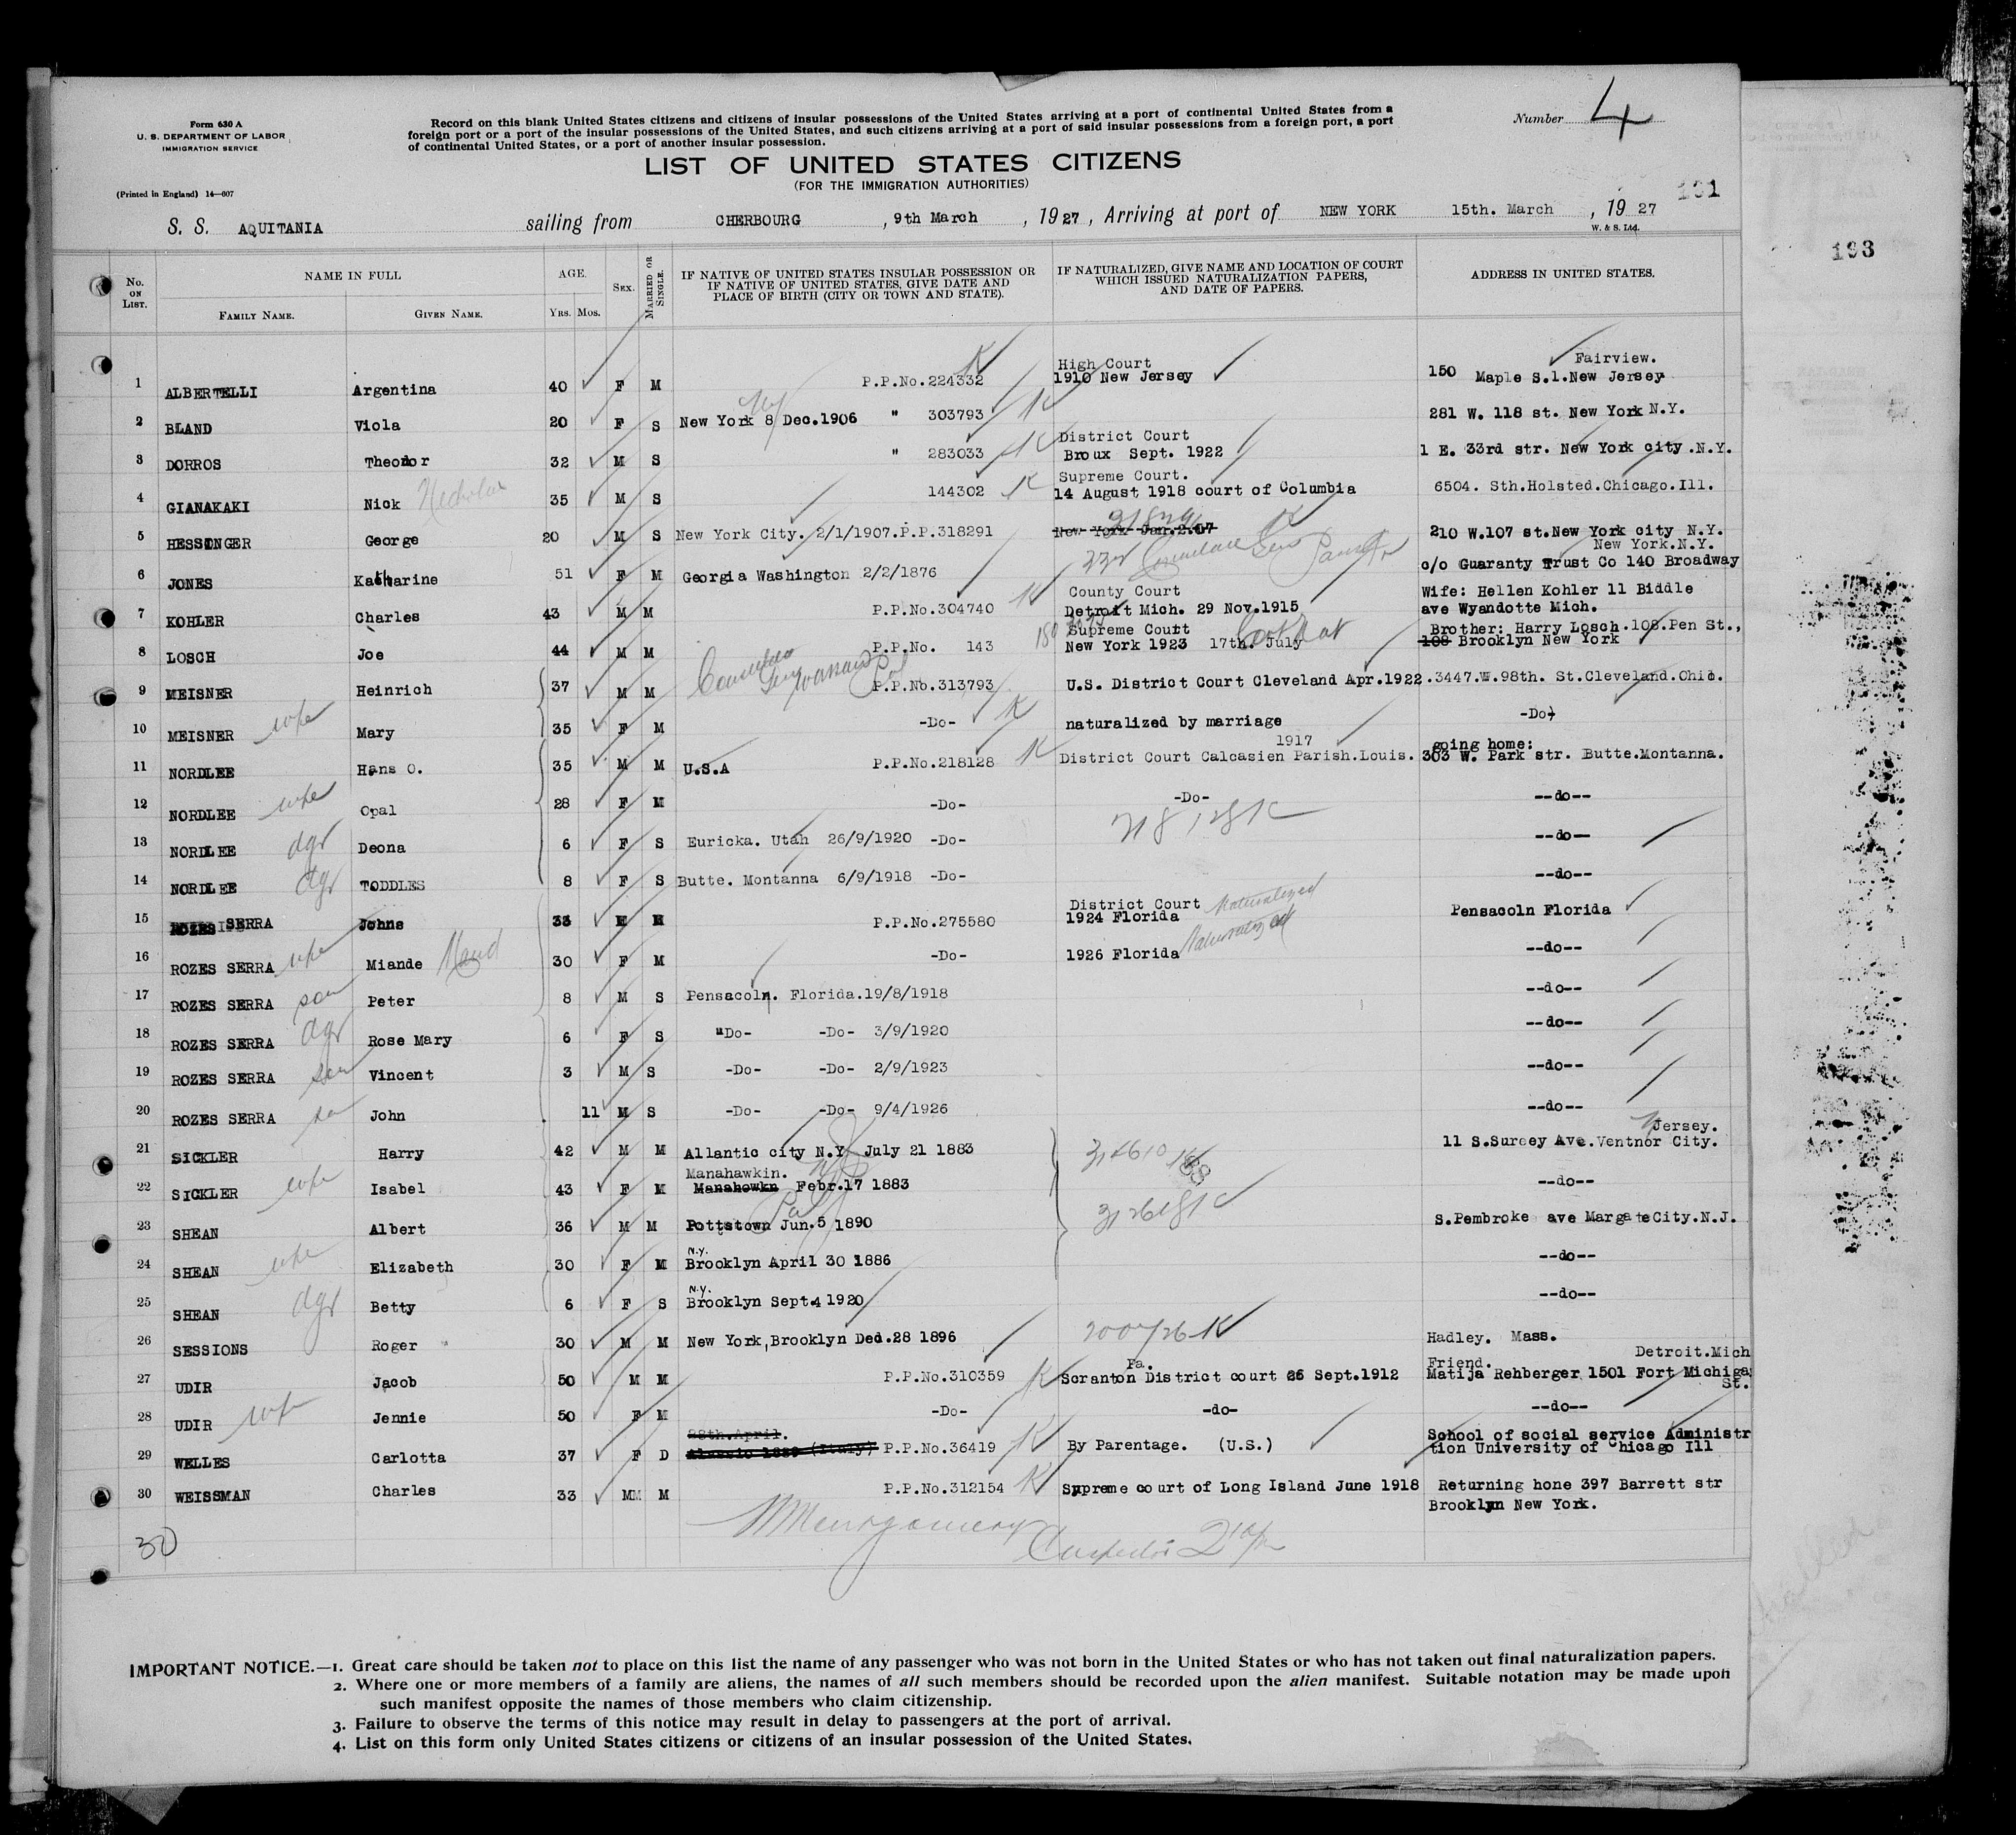 Form 630 A
U. S. DEPARTMENT OF LABOR
IMMIGRATION SERVICE
(Printed in England) 14—607
Record on this blank United States citizens and citizens of insular possessions of the United States arriving at a port of continental United States from a
foreign port or a port of the insular possessions of the United States, and such citizens arriving at a port of said insular possessions from a foreign port, a port
of continental United States, or a port of another insular possession.
Number 4
LIST OF UNITED STATES CITIZENS
(FOR THE IMMIGRATION AUTHORITIES)
S. S. AQUITANIA sailing from CHERBOURG , 9th March , 1927 , Arriving at port of NEW YORK 15th. March , 19 27
W. & S. Ltd.
193
No. ON LIST.
NAME IN FULL
FAMILY NAME. GIVEN NAME.
AGE.
YRS. MOS.
SEX.
MARRIED OR SINGLE.
IF NATIVE OF UNITED STATES INSULAR POSSESSION OR
IF NATIVE OF UNITED STATES, GIVE DATE AND
PLACE OF BIRTH (CITY OR TOWN AND STATE).
IF NATURALIZED, GIVE NAME AND LOCATION OF COURT
WHICH ISSUED NATURALIZATION PAPERS,
AND DATE OF PAPERS.
ADDRESS IN UNITED STATES.
High Court Fairview.
1 ALBERTELLI Argentina 40 F M P.P.No.224332 K 1910 New Jersey 150 Maple S.l.New Jersey
2 BLAND Viola 20 F S New York 8 Dec.1906 " 303793 K 281 W. 118 st. New York N.Y.
District Court
3 DORROS Theodor 32 M S " 283033 K Broux Sept. 1922 1 E. 33rd str. New York city.N.Y.
Supreme Court.
4 GIANAKAKI Nick 35 M S 144302 K 14 August 1918 court of Columbia 6504. Sth.Holsted.Chicago.Ill.
5 HESSINGER George 20 M S New York City. 2/1/1907.P.P.318291 New York Jan.2.07 K 210 W.107 st.New York city N.Y.
New York.N.Y.
6 JONES Katharine 51 F M Georgia Washington 2/2/1876 c/o Guaranty Trust Co 140 Broadway
County Court Wife: Hellen Kohler 11 Biddle
7 KOHLER Charles 43 M M P.P.No.304740 K Detroit Mich. 29 Nov.1915 ave Wyandotte Mich.
Supreme Court Brother: Harry Losch.108.Pen St.,
8 LOSCH Joe 44 M M P.P.No. 143 New York 1923 17th. July 108 Brooklyn New York
9 MEISNER Heinrich 37 M M P.P.No.313793 U.S. District Court Cleveland Apr.1922 .3447.W.98th. St.Cleveland.Ohio.
10 MEISNER wife Mary 35 F M -Do- K naturalized by marriage -Do-
1917 going home:
11 NORDLEE Hans O. 35 M M U.S.A P.P.No.218128 K District Court Calcasien Parish.Louis. 303 W. Park str. Butte.Montanna.
12 NORDLEE wife Opal 28 F M -Do- -Do- --do--
218128 K
13 NORDLEE dgr Deona 6 F S Euricka. Utah 26/9/1920 -Do- --do--
14 NORDLEE dgr TODDLES 8 F S Butte. Montanna 6/9/1918 -Do- --do--
District Court Naturalized
15 SERRA Johns 33 M M P.P.No.275580 1924 Florida Pensacoln Florida
16 ROZES SERRA wife Miande Maud 30 F M -Do- 1926 Florida Naturalized --do--
17 ROZES SERRA son Peter 8 M S Pensacoln. Florida.19/8/1918 --do--
18 ROZES SERRA dgr Rose Mary 6 F S "Do- -Do- 3/9/1920 --do--
19 ROZES SERRA son Vincent 3 M S -Do- -Do- 2/9/1923 --do--
20 ROZES SERRA John 11 M S -Do- -Do- 9/4/1926 --do--
Jersey.
21 SICKLER Harry 42 M M Allantic city N.Y. July 21 1883 11 S.Surcey Ave.Ventnor City.
Manahawkin.
22 SICKLER wife Isabel 43 F M Manahowkn Febr.17 1883 --do--
23 SHEAN Albert 36 M M Pottstown Jun.5 1890 S.Pembroke ave MargateCity.N.J.
N.Y.
24 SHEAN wife Elizabeth 30 F M Brooklyn April 30 1886 --do--
N.Y.
25 SHEAN dgr Betty 6 F S Brooklyn Sept.4 1920 --do--
26 SESSIONS Roger 30 M M New York,Brooklyn Ded.28 1896 200726 K Hadley. Mass.
Pa. Friend. Detroit.Mich
27 UDIR Jacob 50 M M P.P.No.310359 K Scranton District court 26 Sept.1912 Matija Rehberger 1501 Fort Michiga
St.
28 UDIR wife Jennie 50 F M -Do- -do- --do--
28th.April. School of social service Administr
29 WELLES Carlotta 37 F D Alassio 1889 (Italy) P.P.No.36419 K By Parentage. (U.S.) tion University of Chicago Ill
30 WEISSMAN Charles 33 MM M P.P.No.312154 K Supreme court of Long Island June 1918 Returning hone 397 Barrett str
Brooklyn New York.
30
IMPORTANT NOTICE.—1. Great care should be taken not to place on this list the name of any passenger who was not born in the United States or who has not taken out final naturalization papers.
2. Where one or more members of a family are aliens, the names of all such members should be recorded upon the alien manifest. Suitable notation may be made upon
such manifest opposite the names of those members who claim citizenship.
3. Failure to observe the terms of this notice may result in delay to passengers at the port of arrival.
4. List on this form only United States citizens or citizens of an insular possession of the United States.